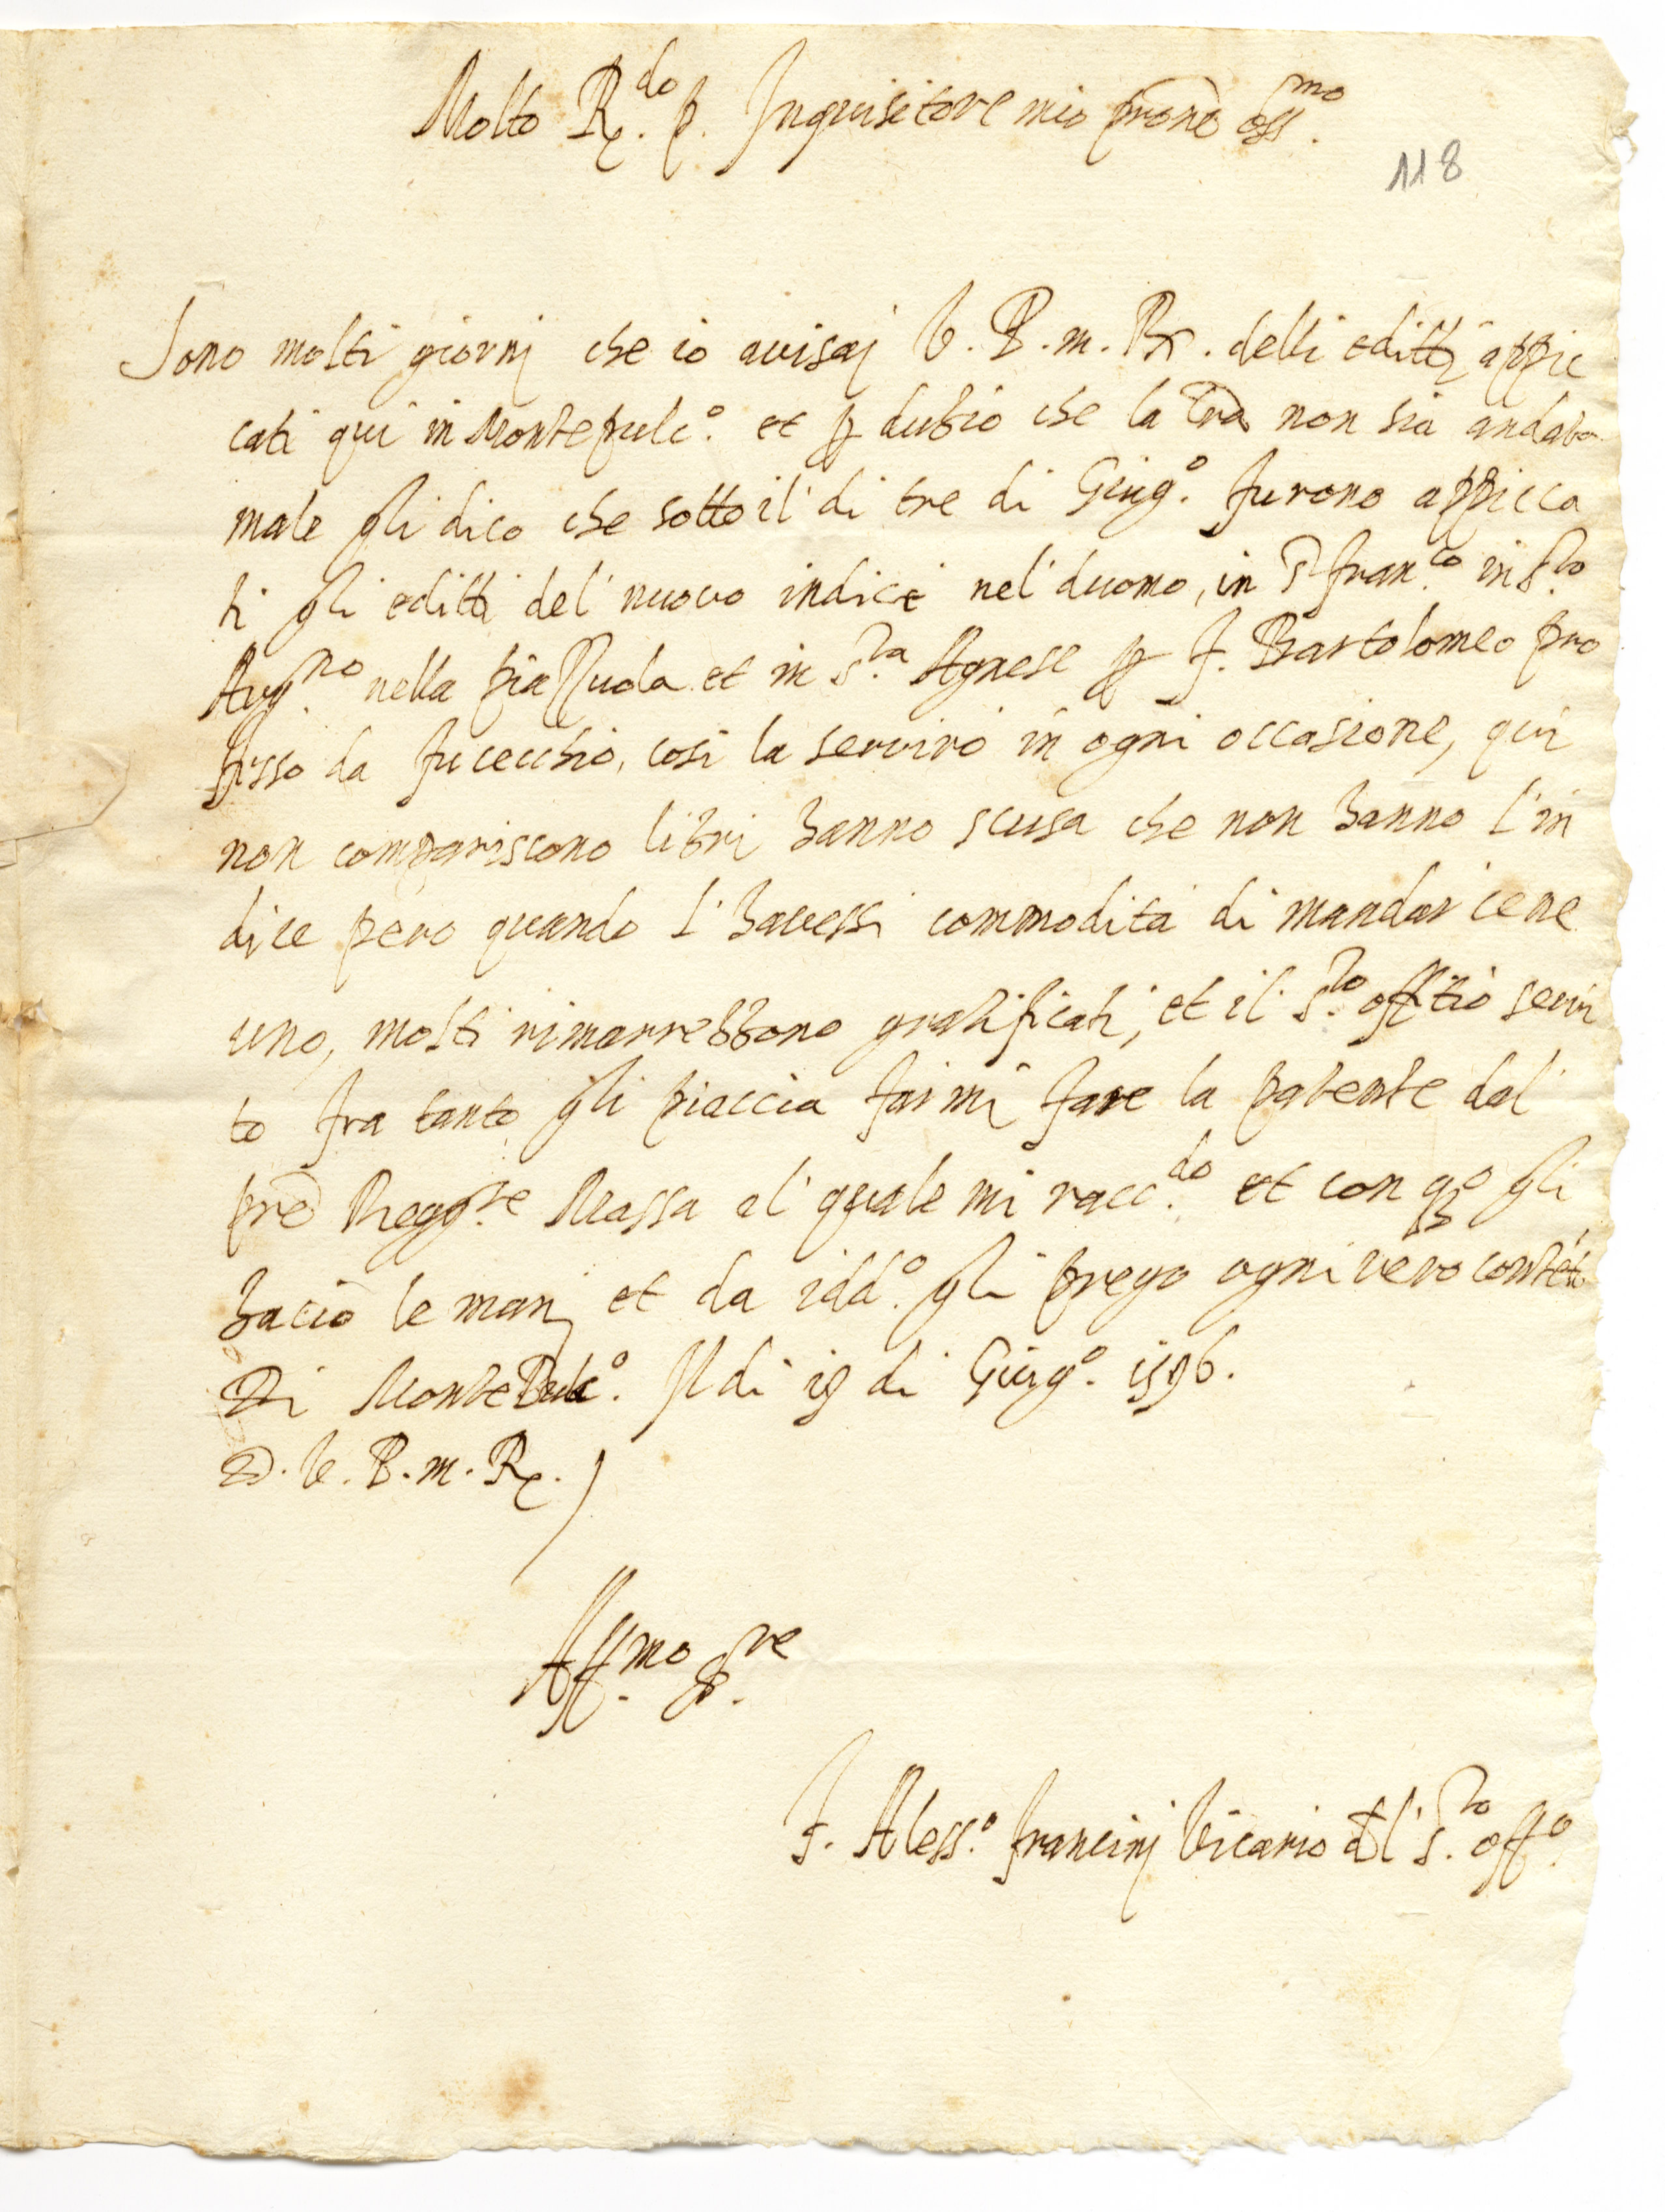 Molto R.do p. Inquisitore mio prone oss.mo
118
Sono molti giorni che io avisaj V. P. m. R. delli editti appic
cati qui in Montepulc.o et p dubio che la lra non sia andata
male gli dico che sotto il di tre di Giug.o furono appicca
ti gli editti del nuovo indice nel duomo, in S. fran.co in S.to
Aug.no nella piazzuola et in S.ta Agnese p f. Bartolomeo pro
fesso da fucecchio, cosi la serviro in ogni occasione, qui
non compariscono libri hanno scusa che non hanno l'in
dice pero quando l'havessi commodita di mandarcene
uno, molti rimarrebbono gratificati, et il S.to offitio servi
to fra tanto gli piaccia farmi fare la patente dal
pre Regg.te Massa al quale mi racc.do et con q.o gli
bacio le manj et da idd.o gli prego ogni vero contēto
Di Montepulc.o Il di 18 di Giug.o 1596.
D. V. P. m. R.
Aff.mo s.re
f. Aless.o francinj Vicario del S.to off.o